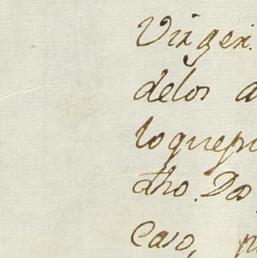 Virgen.
delos a
loquepu
dho. Do
Caso, p